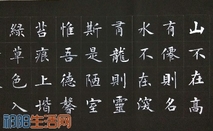 山不在高
有僊則名
水不在深
有龍則靈
斯是陋室
惟吾德馨
苔痕上階
綠草色入
生活网